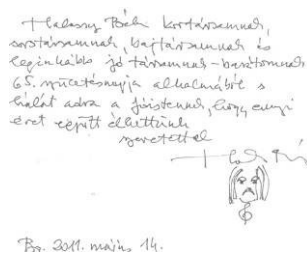 Halassy Béla kortársamnak,
sorstársamnak, bajtársamnak és
leginkább jó társamnak-barátomnak
65. születésnapja alkalmából s
hálát adva a Jóistennek, hogy ennyi
évet együtt élhettünk
szeretettel
Bp. 2011. május 14.